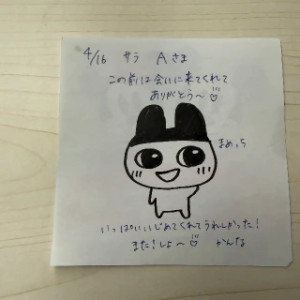 4/16 サラ Aさま
この前は会いに来てくれて
ありがとう〜
まめっち
いっぱいいじめてくれてうれしかった!
また!しよ〜 かんな